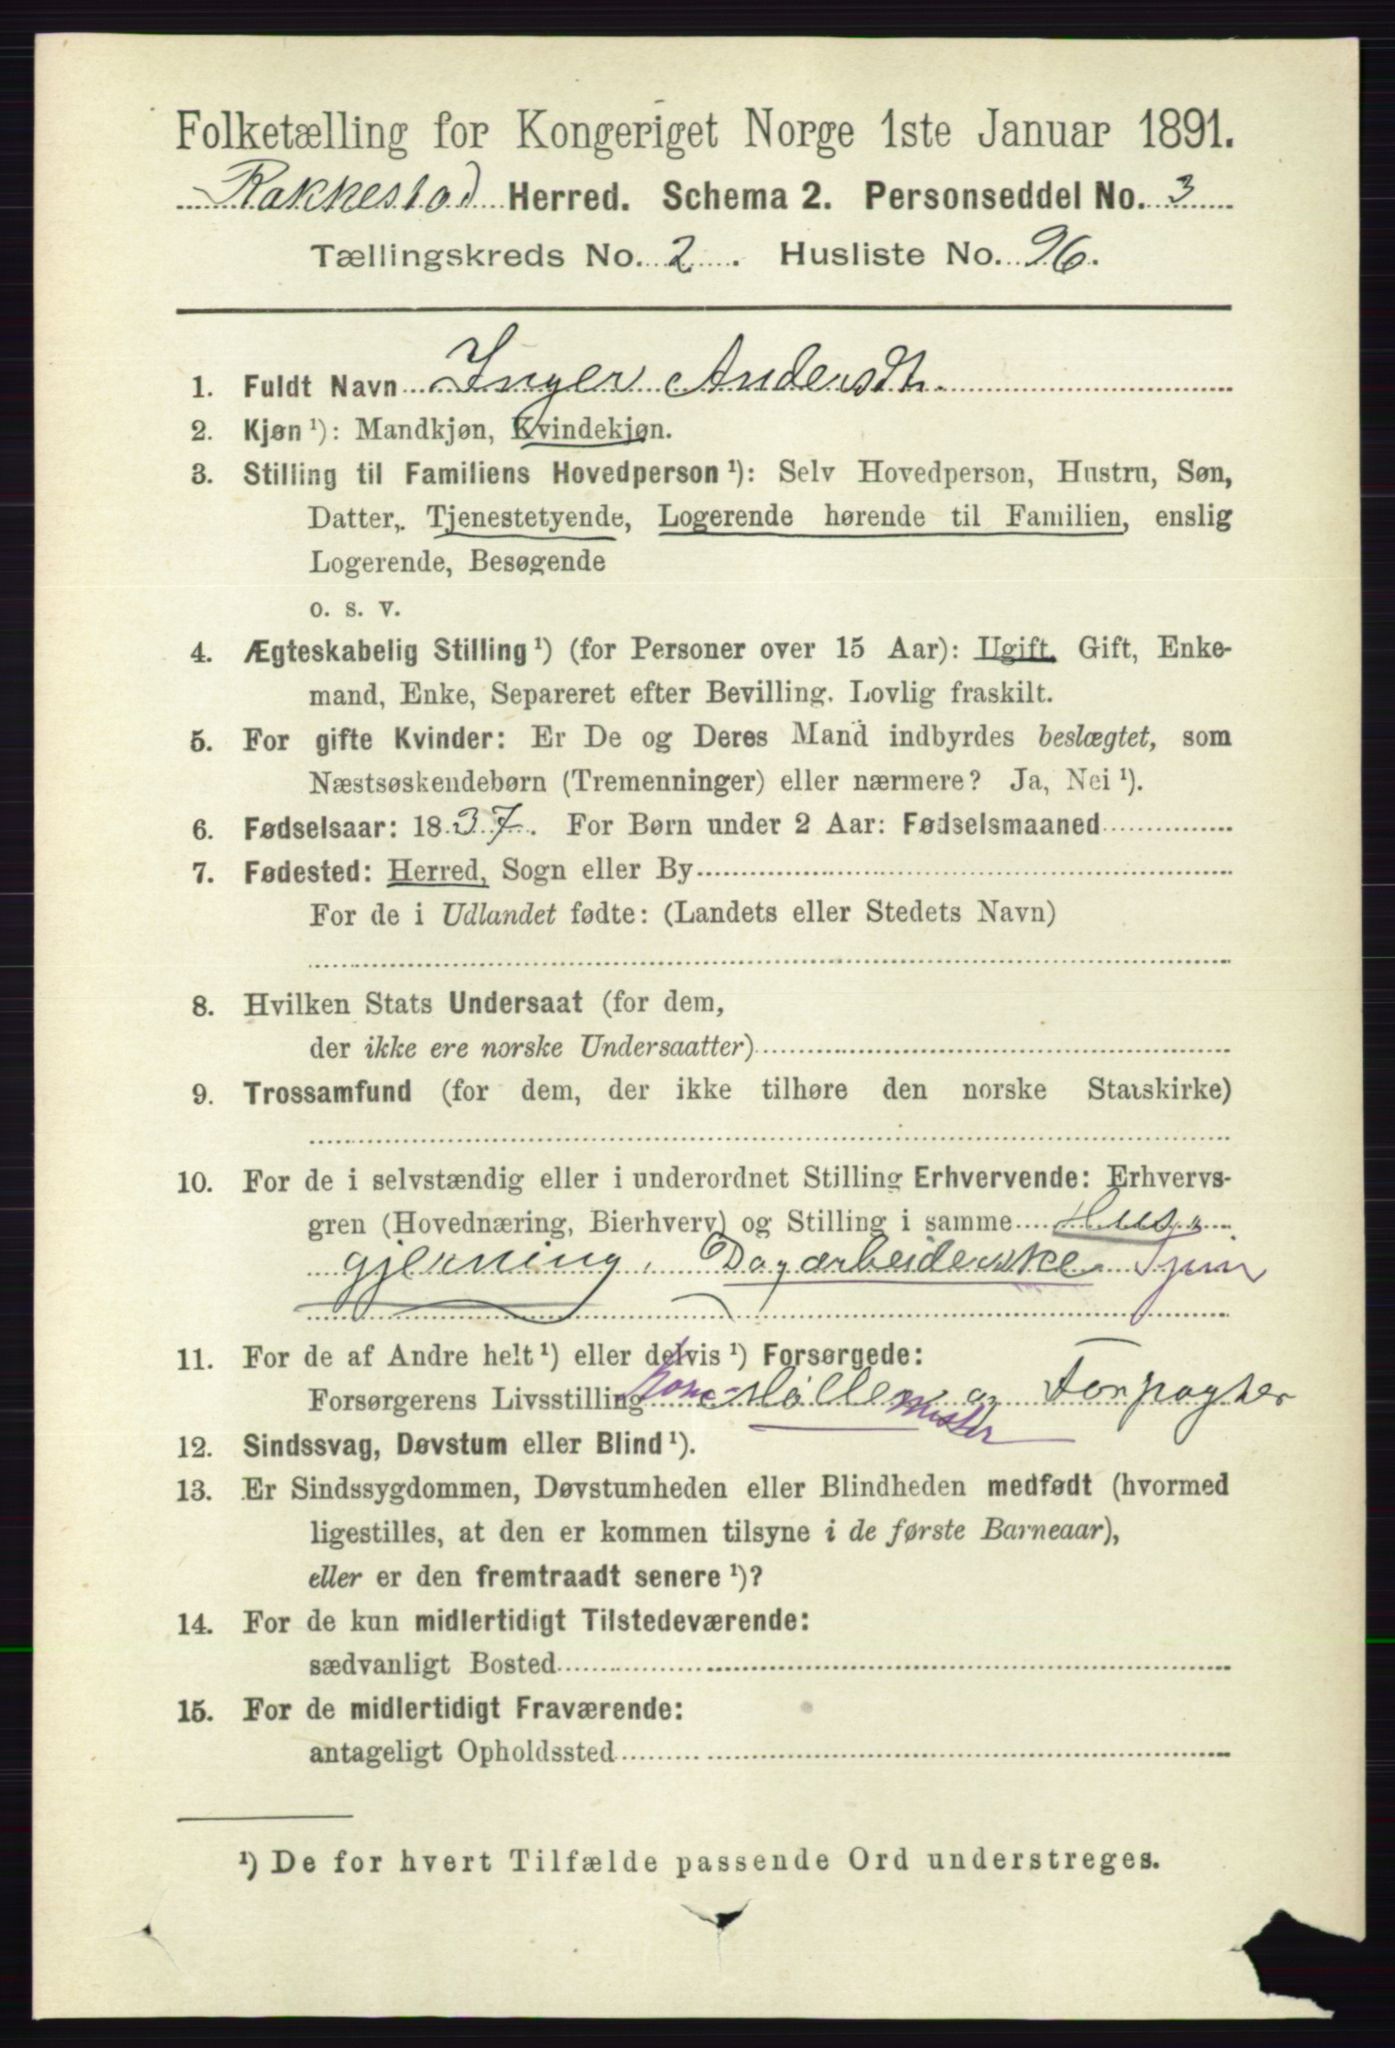 Folketælling for Kongeriget Norge 1ste Januar 1891.
Rakkestad Herred. Schema 2. Personseddel No. 3
Tællingskreds No. 2. Husliste No. 96.
1. Fuldt Navn Inger Andersdtr.
2. Kjøn ¹): Mandkjøn, Kvindekjøn.
3. Stilling til Familiens Hovedperson ¹): Selv Hovedperson, Hustru, Søn,
Datter, Tjenestetyende, Logerende hørende til Familien, enslig
Logerende, Besøgende
o. s. v.
4. Ægteskabelig Stilling ¹) (for Personer over 15 Aar): Ugift, Gift, Enke-
mand, Enke, Separeret efter Bevilling. Lovlig fraskilt.
5. For gifte Kvinder: Er De og Deres Mand indbyrdes beslægtet, som
Næstsøskendebørn (Tremenninger) eller nærmere? Ja, Nei ¹).
6. Fødselsaar: 1837. For Børn under 2 Aar: Fødselsmaaned
7. Fødested: Herred, Sogn eller By
For de i Udlandet fødte: (Landets eller Stedets Navn)
8. Hvilken Stats Undersaat (for dem,
der ikke ere norske Undersaatter)
9. Trossamfund (for dem, der ikke tilhøre den norske Statskirke)
10. For de i selvstændig eller i underordnet Stilling Erhvervende: Erhvervs-
gren (Hovednæring, Bierhverv) og Stilling i samme Hus-
gjerning. Dagarbeiderske
11. For de af Andre helt ¹) eller delvis ¹) Forsørgede:
Forsørgerens Livsstilling Møller og Forpagter
mester
12. Sindssvag, Døvstum eller Blind ¹).
13. Er Sindssygdommen, Døvstumheden eller Blindheden medfødt (hvormed
ligestilles, at den er kommen tilsyne i de første Barneaar),
eller er den fremtraadt senere ¹)?
14. For de kun midlertidigt Tilstedeværende:
sædvanligt Bosted
15. For de midlertidigt Fraværende:
antageligt Opholdssted
¹) De for hvert Tilfælde passende Ord understreges.